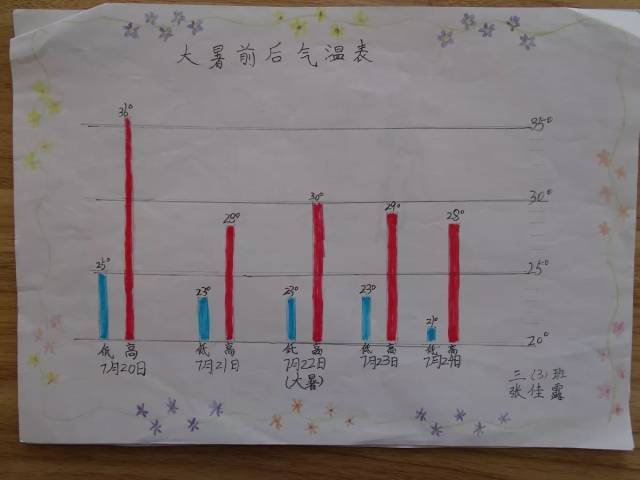 大暑前后气温表
36°
35°
30°
30°
29°
28°
28°
25°
25°
23°
23°
23°
21°
20°
低 高 低 高 低 高 低 高 低 高
7月20日 7月21日 7月22日 7月23日 7月24日
(大暑)
三(3)班
张佳露